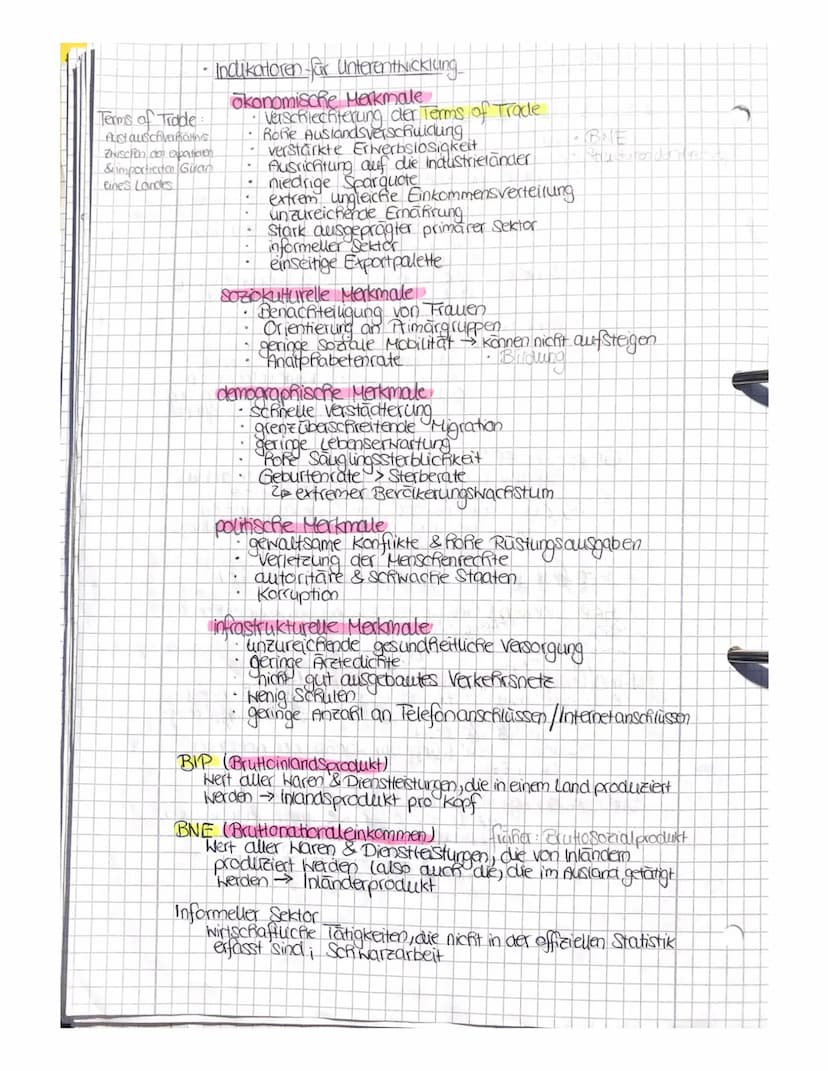 · Indikatoren für Unterentwicklung
ökonomische Merkmale
Terms of Trade:
Austauschverhältnis
zwischen den exportierten
& importierten Gütern
eines Landes
· Verschlechterung der Terms of Trade
· hohe Auslandsverschuldung
· verstärkte Erwerbslosigkeit
· Ausrichtung auf die Industrieländer
· niedrige Sparquote
· extrem ungleiche Einkommensverteilung
· unzureichende Ernährung
· stark ausgeprägter primärer Sektor
· informeller Sektor
· einseitige Exportpalette
· BNE
soziokulturelle Merkmale
· Benachteiligung von Frauen
· Orientierung an Primärgruppen
· geringe soziale Mobilität → können nicht aufsteigen
· Analphabetenrate · Bildung
demographische Merkmale
· schnelle Verstädterung
· grenzüberschreitende Migration
· geringe Lebenserwartung
· hohe Säuglingssterblichkeit
· Geburtenrate > Sterberate
↳ extremer Bevölkerungswachstum
politische Merkmale
· gewaltsame Konflikte & hohe Rüstungsausgaben
· Verletzung der Menschenrechte
· autoritäre & schwache Staaten
· Korruption
infrastrukturelle Merkmale
· unzureichende gesundheitliche Versorgung
· geringe Ärztedichte
· nicht gut ausgebautes Verkehrsnetz
· wenig Schulen
· geringe Anzahl an Telefonanschlüssen/Internetanschlüssen
BIP (Bruttoinlandsprodukt)
Wert aller Waren & Dienstleistungen, die in einem Land produziert
werden → Inlandsprodukt pro Kopf
BNE (Bruttonationaleinkommen) früher: Bruttosozialprodukt
Wert aller Waren & Dienstleistungen, die von Inländern
produziert werden (also auch die, die im Ausland getätigt
werden → Inländerprodukt
Informeller Sektor
wirtschaftliche Tätigkeiten, die nicht in der offiziellen Statistik
erfasst sind; Schwarzarbeit